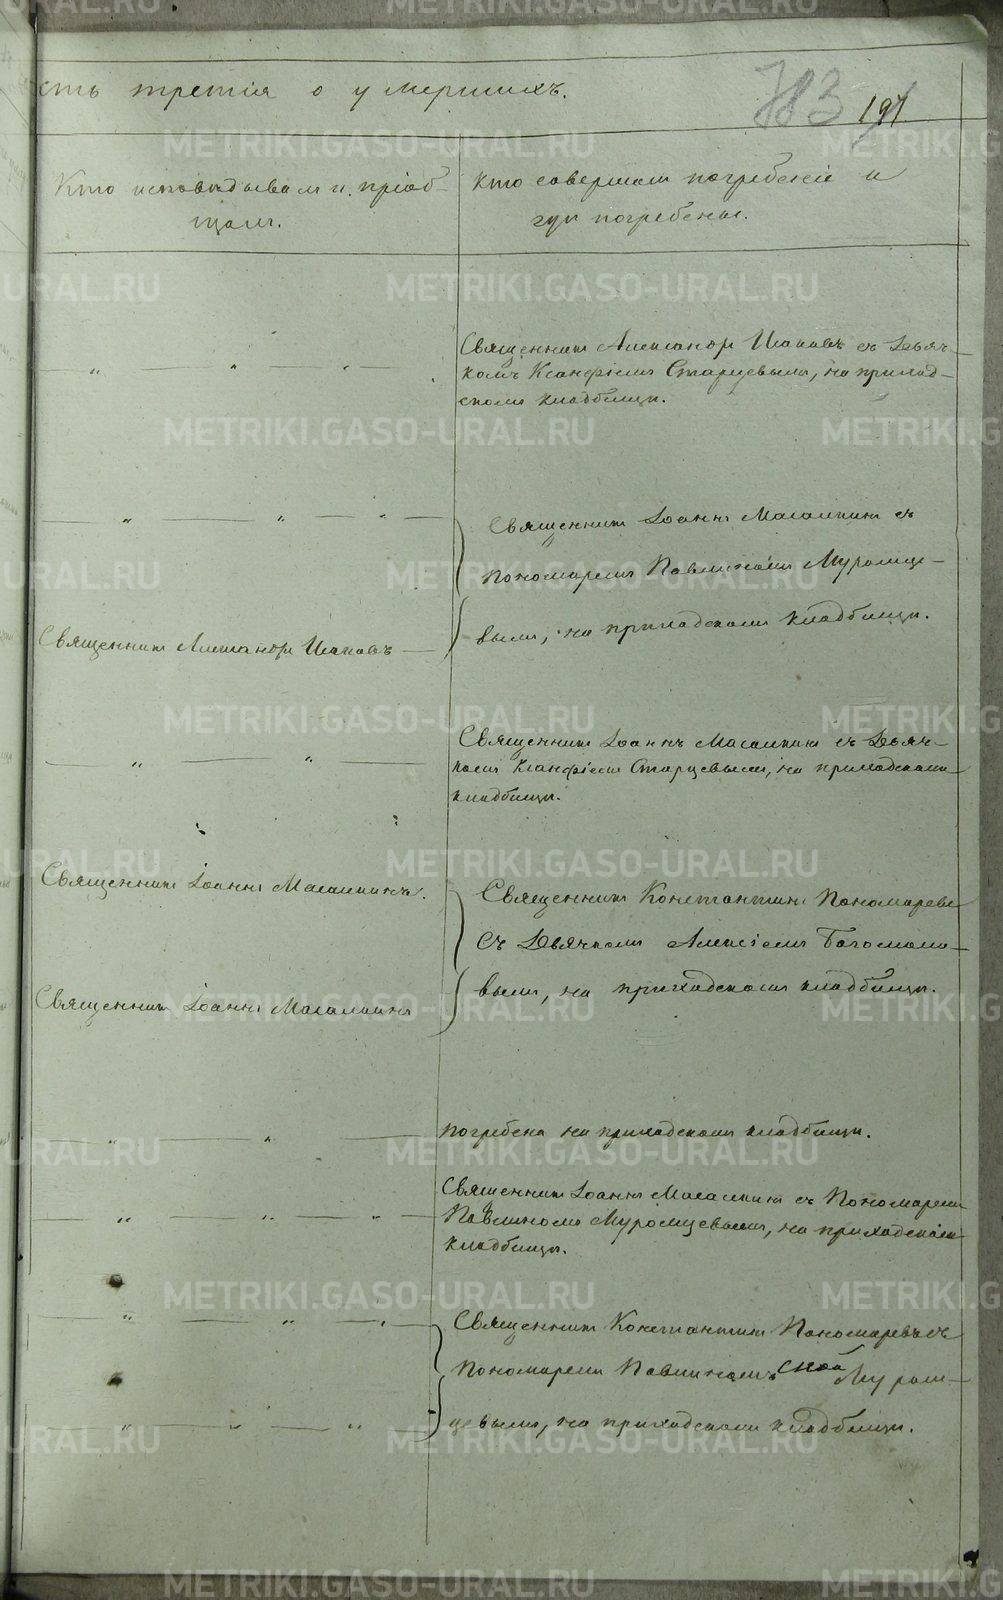 сть третія о умершихъ.
783 197
Кто исповѣдывалъ и пріоб-
щалъ.
Кто совершалъ погребеніе и
гдѣ погребены.
Священникъ Александръ Исаковъ съ Дьяч-
комъ Ксанфіемъ Старцевымъ, на приход-
скомъ кладбищѣ.
Священникъ Іоаннъ Масалкинъ съ
пономаремъ Павлиномъ Муромце-
вымъ, на приходскомъ кладбищѣ.
Священникъ Александръ Исаковъ
Священникъ Іоаннъ Масалкинъ съ Дьяч-
комъ Ксанфіемъ Старцевымъ, на приходскомъ
кладбищѣ.
Священникъ Іоаннъ Масалкинъ.
Священникъ Константинъ Пономаревъ
Съ Дьячкомъ Алексіемъ Богомоло-
вымъ, на приходскомъ кладбищѣ.
Священникъ Іоаннъ Масалкинъ
погребена на приходскомъ кладбищѣ.
Священникъ Іоаннъ Масалкинъ съ Пономаремъ
Павлиномъ Муромцевымъ, на приходскомъ
кладбищѣ.
Священникъ Константинъ Пономаревъ съ
Пономаремъ Павлиномъ Муром-
цевымъ, на приходскомъ кладбищѣ.
METRIKI.GASO-URAL.RU